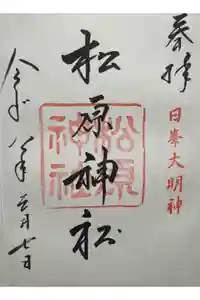 奉拝
日峯大明神
松原神社
松原神社
令和八年三月七日